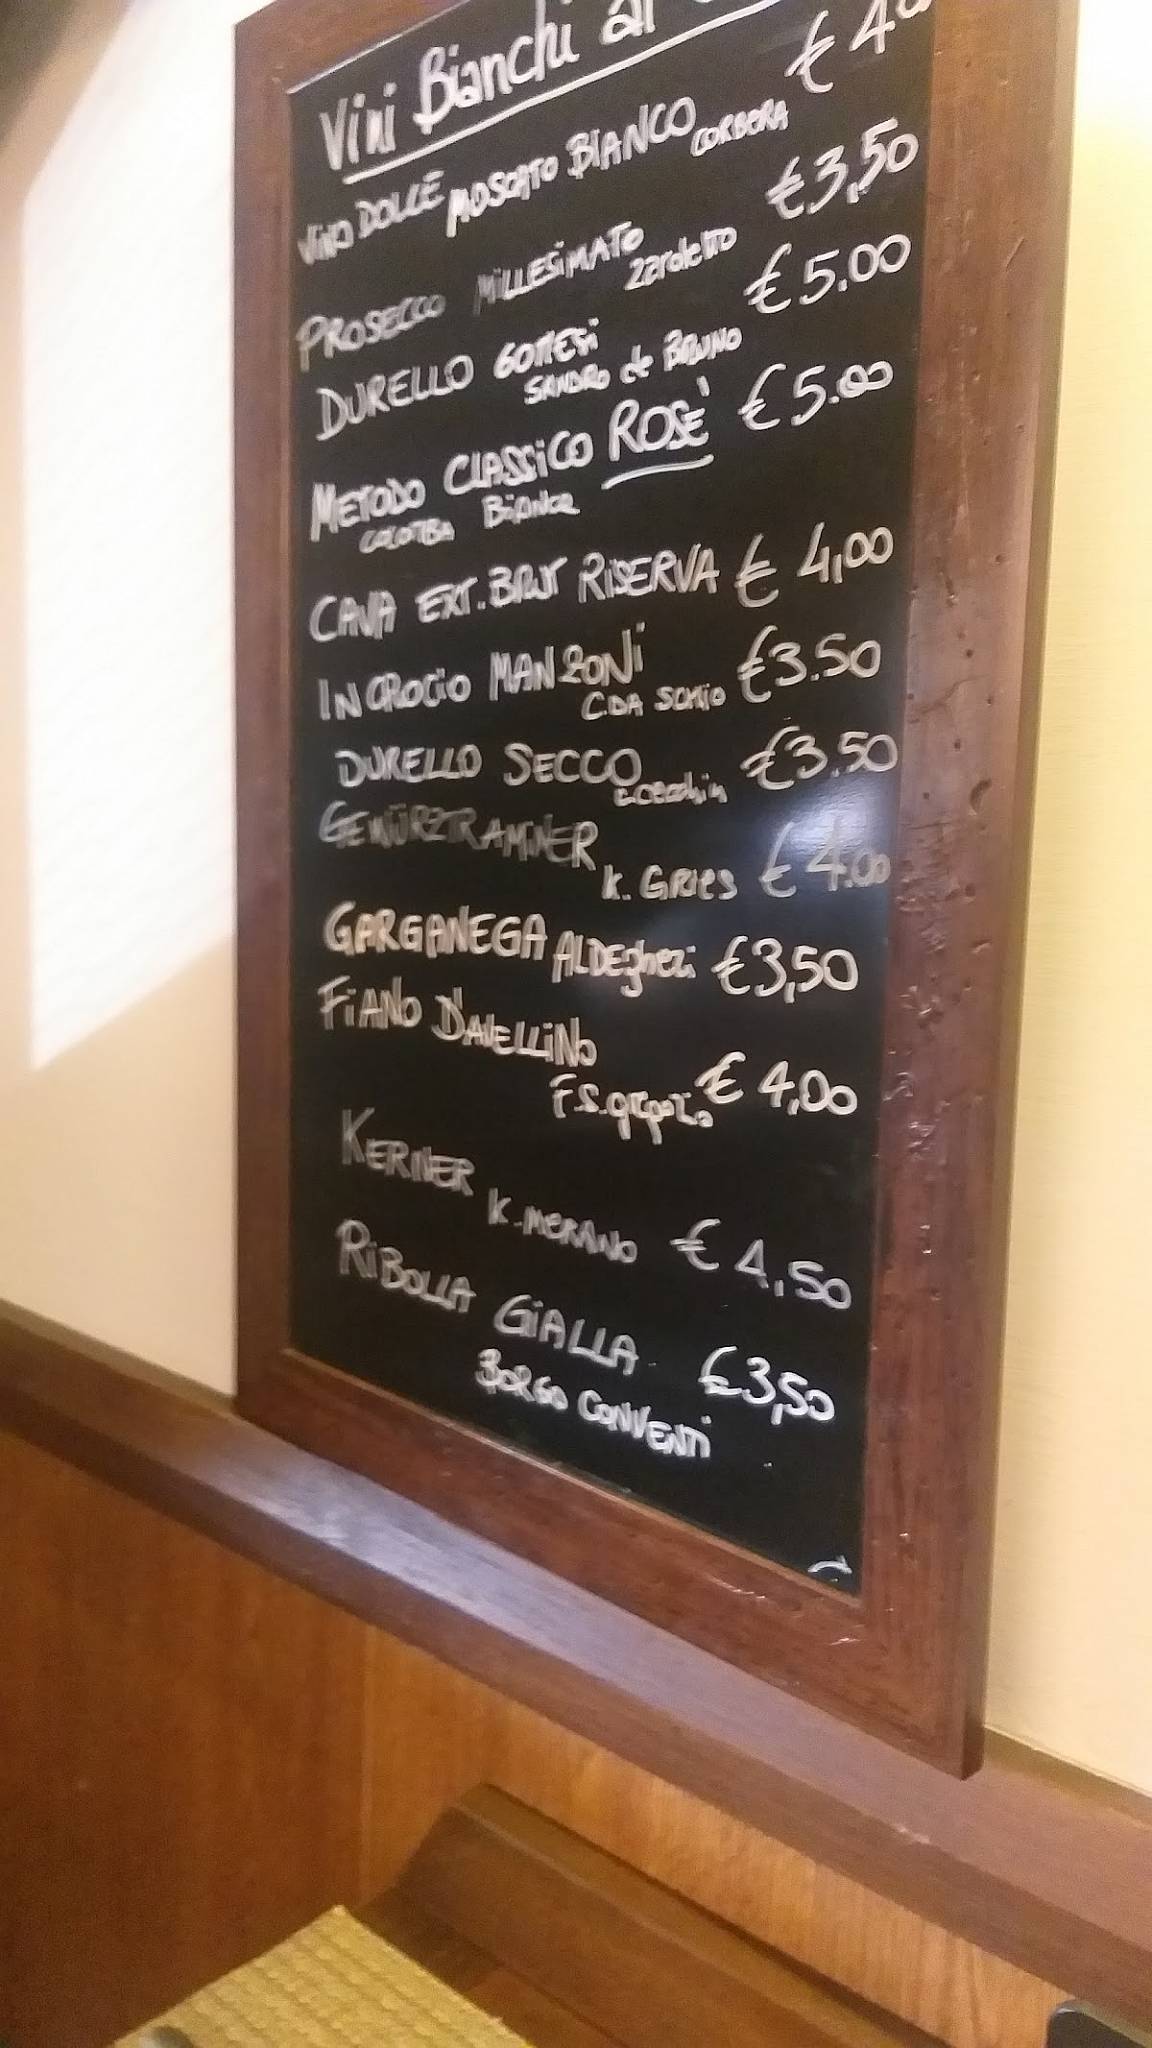 Vini Bianchi al
VINO DOLCE MOSCATO BIANCO CORBERA € 4,0
PROSECCO MILLESIMATO € 3,50
DURELLO € 5.00
SANDRO de BRUNO
METODO CLASSICO ROSÈ € 5.00
COLOMBA BIANCA
CAVA EXT. BRUT RISERVA € 4,00
INCROCIO MANZONI € 3.50
C.DA SCHIO
DURELLO SECCO € 3.50
GEWÜRZTRAMINER
K. GRIES € 4.00
GARGANEGA ALDEgheri € 3,50
FIANO D'AVELLINO
F.S. gregorio € 4,00
KERNER K. MERANO € 4,50
RIBOLLA GIALLA € 3,50
BORGO CONVENTI